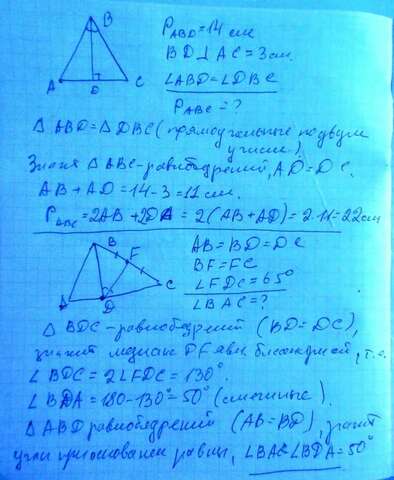 B
A D C
P ABD = 14 см
BD ⊥ AC = 3 см.
∠ABD = ∠DBC
P ABC = ?
△ ABD = △ DBC (прямоугольные по двум
углам)
Значит △ ABC - равнобедренный, AD = DC.
AB + AD = 14 - 3 = 11 см.
P ABC = 2AB + 2DA = 2(AB + AD) = 2·11 = 22 см
B
F
C
A D
AB = BD = DC
BF = FC
∠FDC = 65°
∠BAC = ?
△ BDC - равнобедренный (BD = DC),
значит медиана DF явл. биссектрисой, т.е.
∠BDC = 2∠FDC = 130°.
∠BDA = 180 - 130° = 50° (смежные).
△ ABD равнобедренный (AB = BD), значит
углы при основании равны, ∠BAC = ∠BDA = 50°